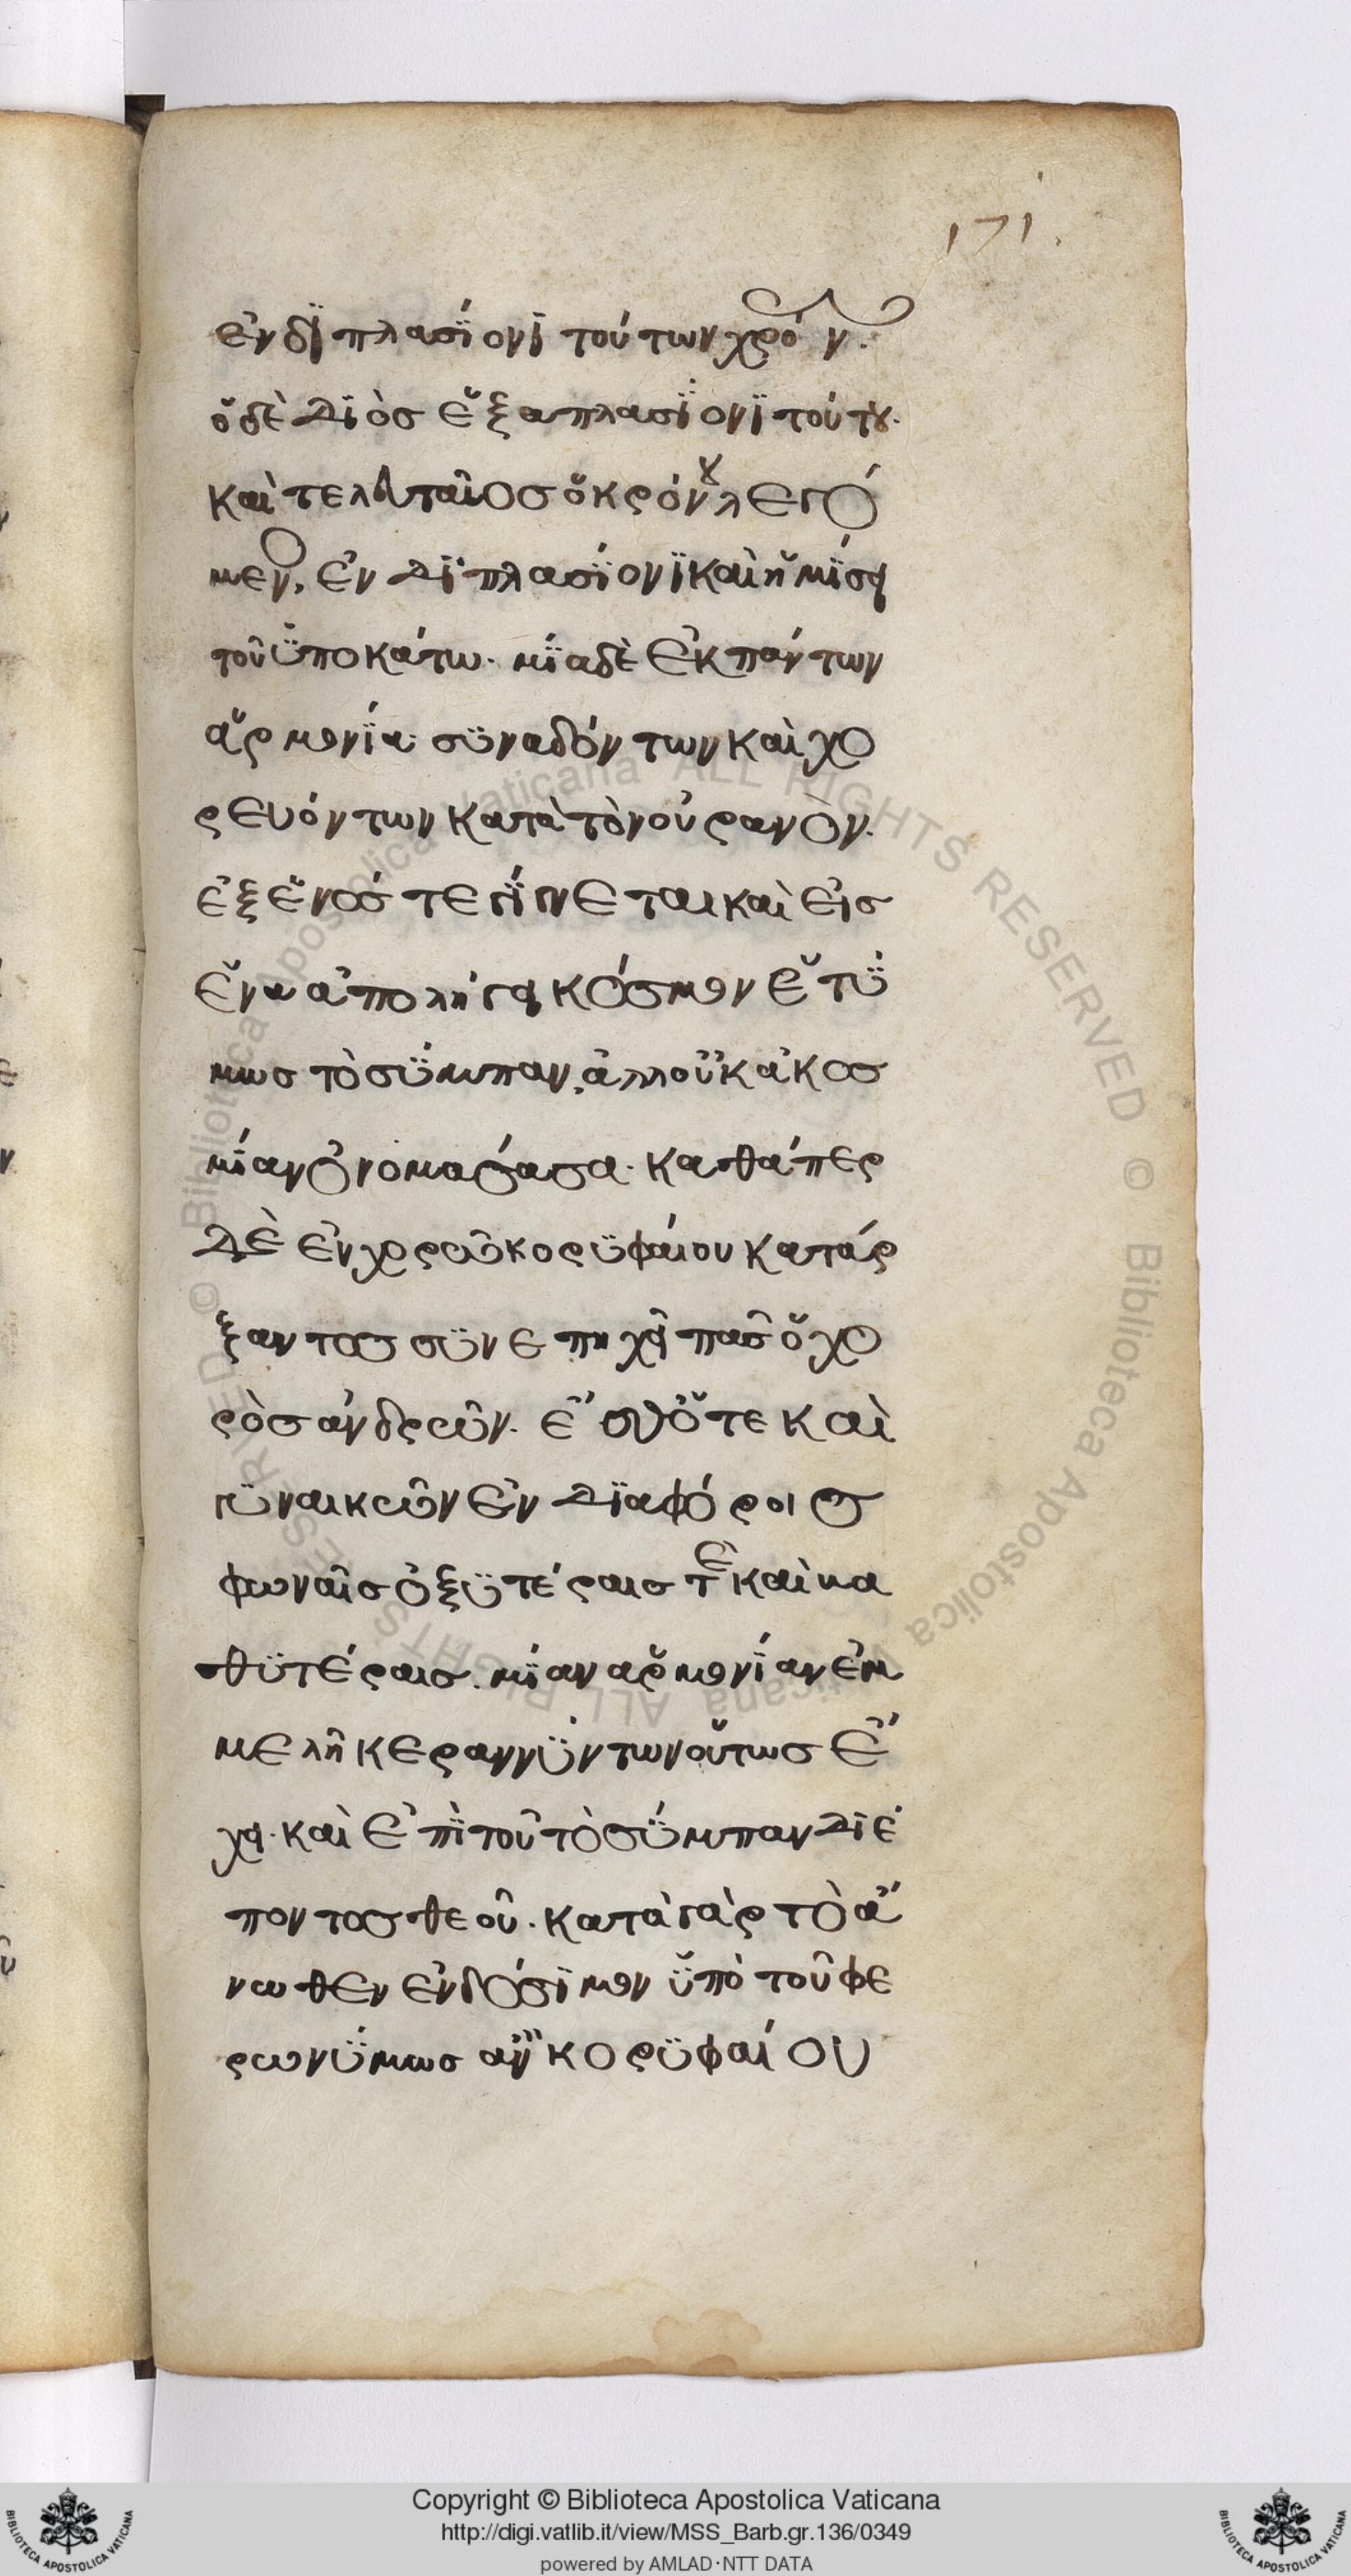 171.
ἐν διπλασίονι τούτων χρόνῳ.
ὁ δὲ Διὸς ἑξαπλασίονι τούτου.
καὶ τελευταῖος ὁ κρόνου λεγό
μενος, ἐν διπλασίονι καὶ ἡμίσει
τοῦ ὑποκάτω. μία δὲ ἐκ πάντων
ἁρμονία συναδόντων καὶ χο
ρευόντων κατὰ τὸν οὐρανὸν.
ἐξ ἑνός τε γίνεται καὶ εἰς
ἓν ἀπολήγει κόσμον ἑτύ
μως τὸ σύμπαν, ἀλλ οὐκ ἀκοσ
μίαν ὀνομάσασα. καθάπερ
δὲ ἐν χορῶ κορυφαίου κατάρ
ξαντος συνεπηχεῖ πᾶς ὁ χο
ρὸς ἀνδρῶν. ἔσθ ὅτε καὶ
γυναικῶν ἐν διαφόροις
φωναῖς ὀξυτέραις τὲ καὶ κα
θυτέραις. μίαν ἁρμονίαν ἐμ
μελῆ κεραννύντων οὕτως ἔ
χει. καὶ ἐπὶ τοῦ τὸ σύμπαν διέ
ποντος θεοῦ. κατὰ γὰρ τὸ ἄ
νωθεν ἐνδόσιμον ὑπὸ τοῦ φε
ρωνύμως ἂν κορυφαίου
Copyright © Biblioteca Apostolica Vaticana
http://digi.vatlib.it/view/MSS_Barb.gr.136/0349
powered by AMLAD·NTT DATA
BIBLIOTECA APOSTOLICA VATICANA
BIBLIOTECA APOSTOLICA VATICANA
© Biblioteca Apostolica Vaticana ALL RIGHTS RESERVED © Biblioteca Apostolica Vaticana ALL RIGHTS RESERVED